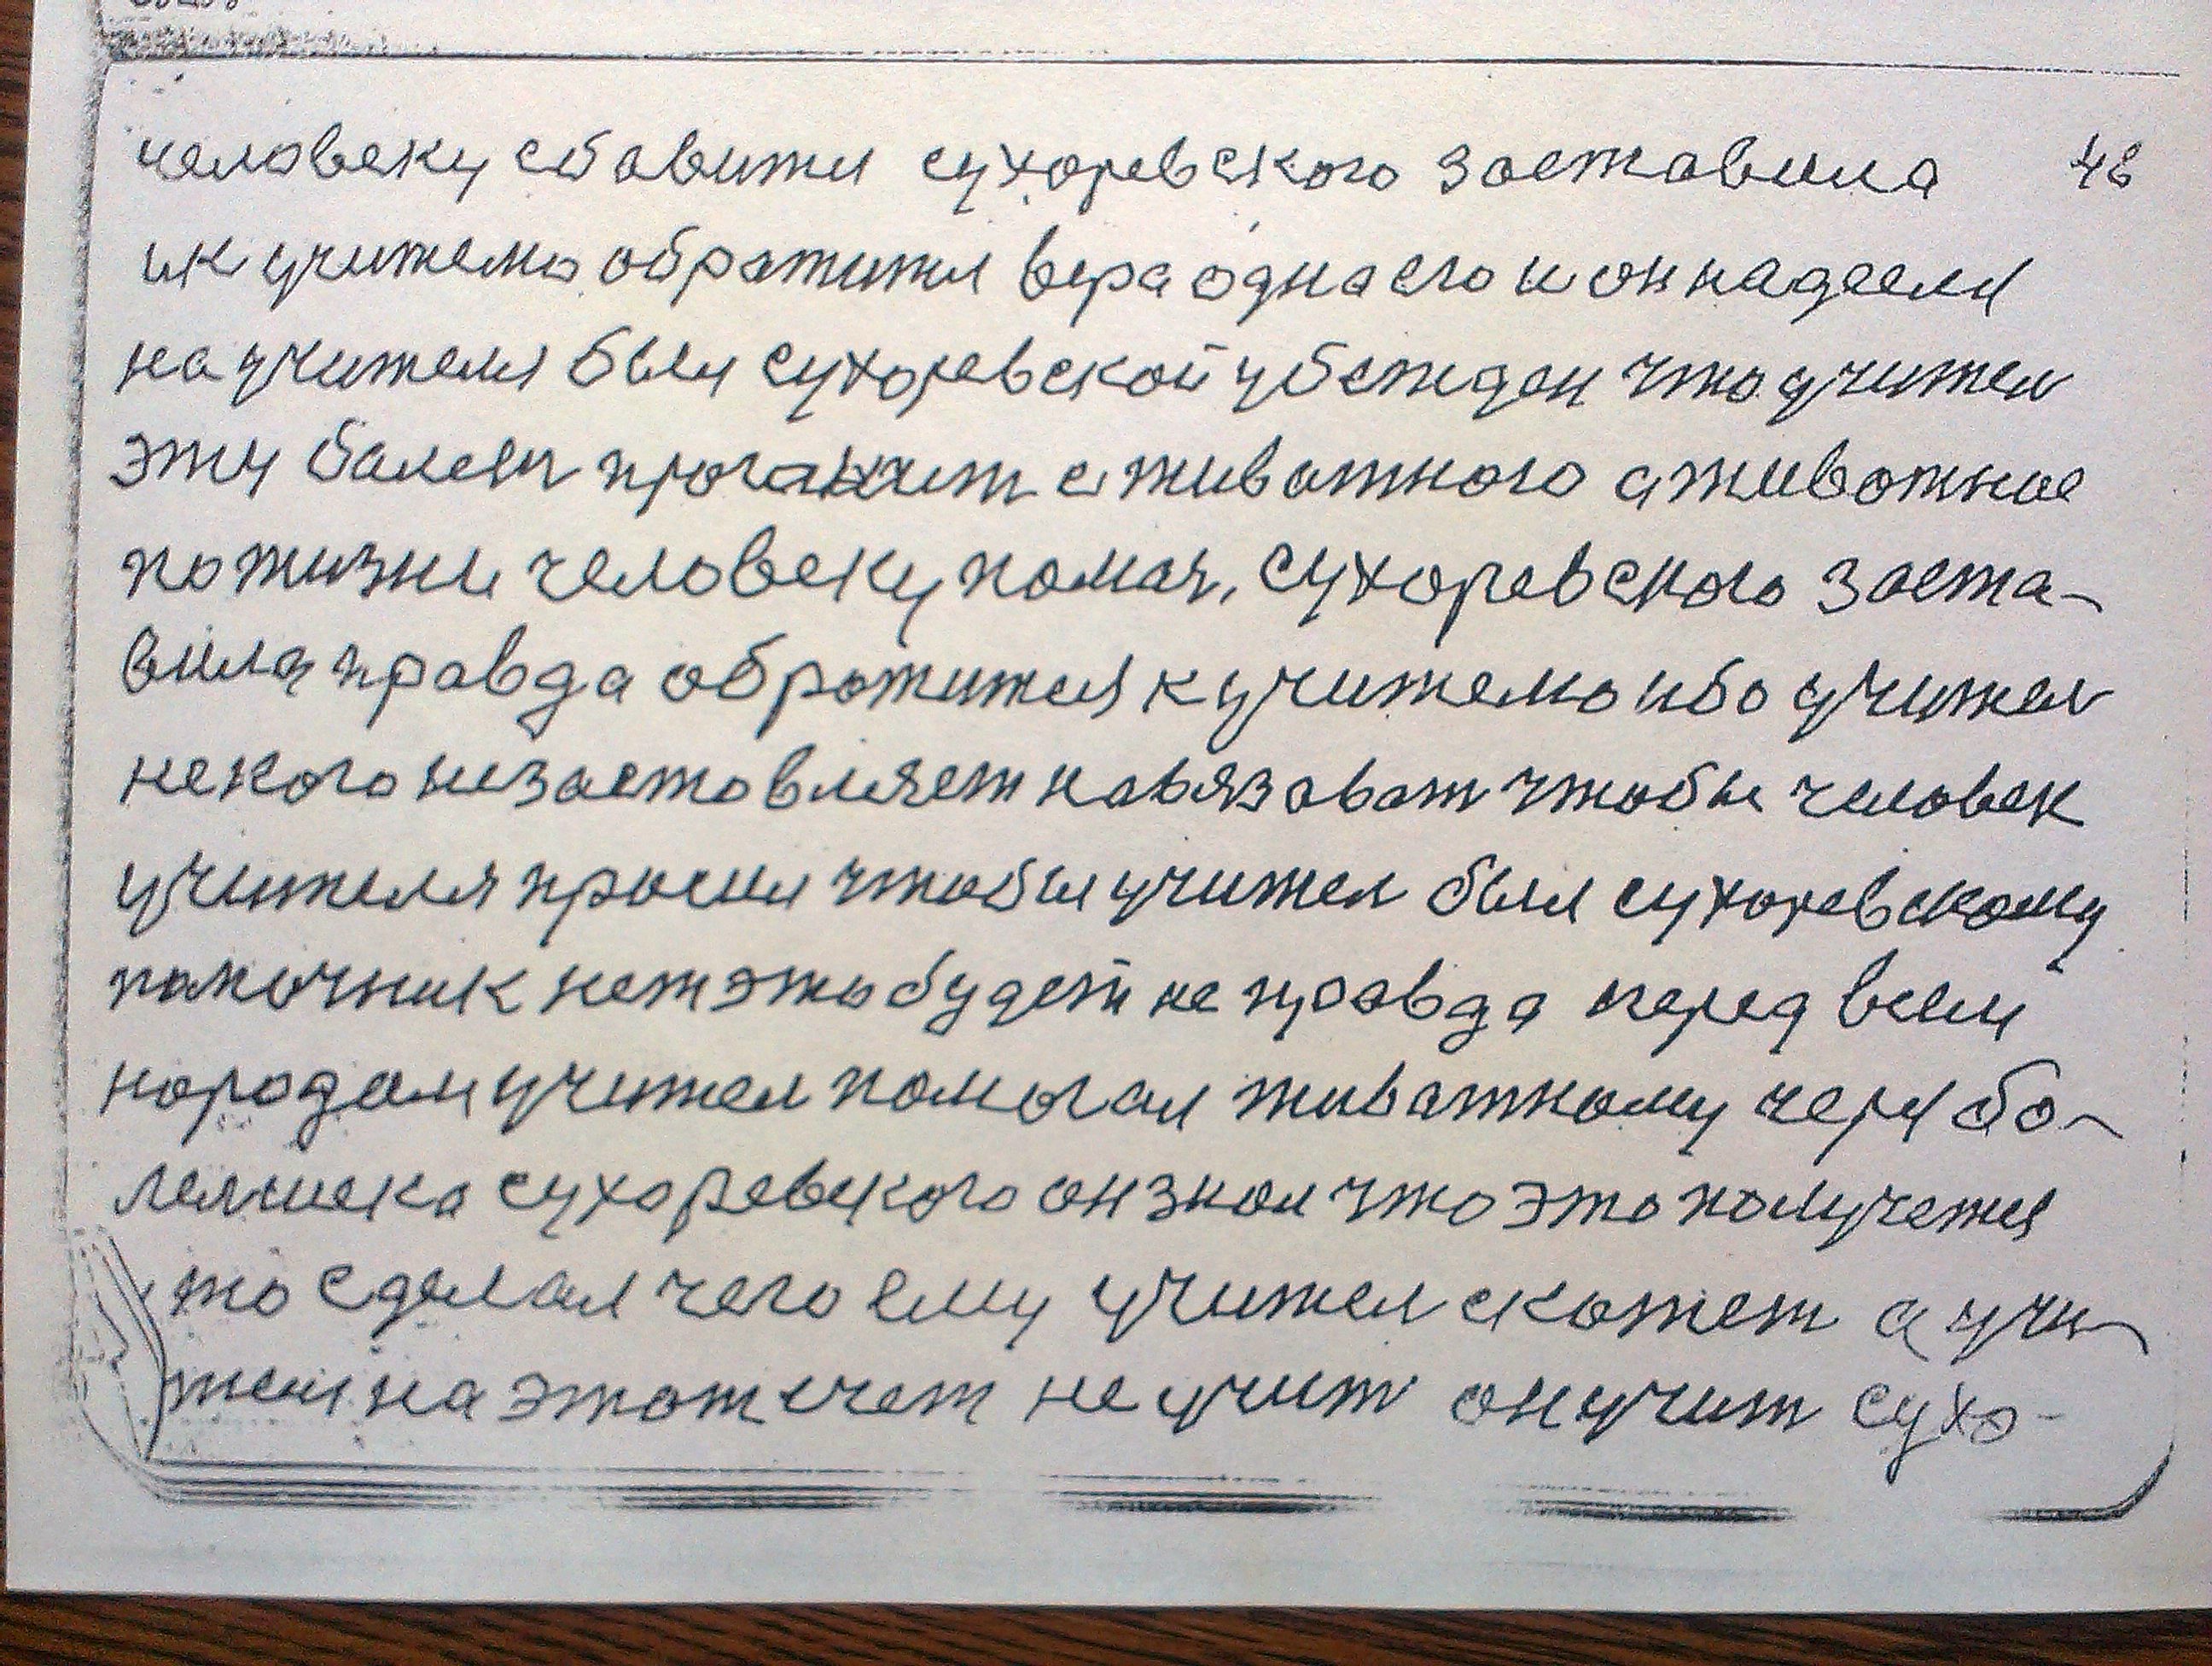 человеку сбавится сухоревского заставила 48
ик учителю обратится вера одна его и он надеелся
на учителя был сухоревской убежден что учител
эту балезн прогонит с живатного а животное
по жизни человеку помоч, сухоревского заста-
вила правда обротится к учителю ибо учител
некого незаставляет навязоват чтобы человек
учителя просил чтобы учител был сухоревскому
помочник нет это будет не правда перед всем
народам учител помогал живатному через бо-
лелшека сухоревского он знал что это получется
то сделал чего ему учител скажет а учи-
тел на этот счет не учит он учит сухо-